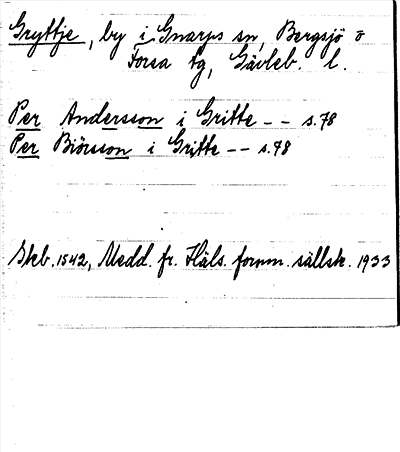 Gryttje, by i Gnarps sn, Bergsjö o
Forsa tg, Gävleb. l.
Per Andersson i Gritte -- s.78
Per Biörsson i Gritte -- s.78
Skb. 1542, Medd. fr. Häls. fornm. sällsk. 1933